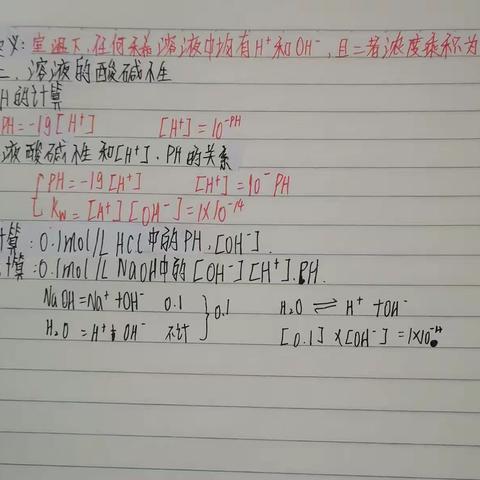 义:室温下,任何稀溶液中均有H⁺和OH⁻,且二者浓度乘积为
二、溶液的酸碱性
H的计算
PH=-lg[H⁺] [H⁺]=10⁻ᴾᴴ
液酸碱性和[H⁺]、PH的关系
PH=-lg[H⁺] [H⁺]=10⁻PH
Kw=[H⁺][OH⁻]=1×10⁻¹⁴
算:0.1mol/L HCl中的PH,[OH⁻].
计算:0.1mol/L NaOH中的[OH⁻][H⁺].PH.
NaOH=Na⁺+OH⁻ 0.1 }0.1 H₂O⇌H⁺+OH⁻
H₂O=H⁺+OH⁻ 不计 [0.1]×[OH⁻]=1×10⁻¹⁴